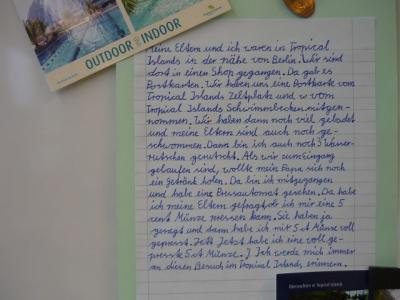 OUTDOOR INDOOR
Meine Eltern und ich waren in Tropical
Islands in der nähe von Berlin. Wir sind
dort in einen Shop gegangen. Da gab es
Postkarten. Wir haben uns eine Postkarte vom
Tropical Islands Zeltplatz und vom
Tropical Islands Schwimmbecken mitgen-
nommen. Wir haben dann noch viel gebadet
und meine Eltern sind auch noch ge-
schwommen. Dann bin ich auch noch 3 Wasser-
rutschen gerutscht. Als wir zum Eingang
gelaufen sind, wollte mein Papa sich noch
ein Getränk holen. Da bin ich mitgegangen
und habe eine Pressautomat gesehen. Da habe
ich meine Eltern gefragt, ob ich mir eine 5
cent Münze pressen kann. Sie haben ja
gesagt und dann habe ich mir 5 ct Münze voll
gepresst. Jetzt habe ich eine voll ge-
presste 5 ct Münze. Ich werde mich immer
an diesen Besuch im Tropical Island, erinnern.